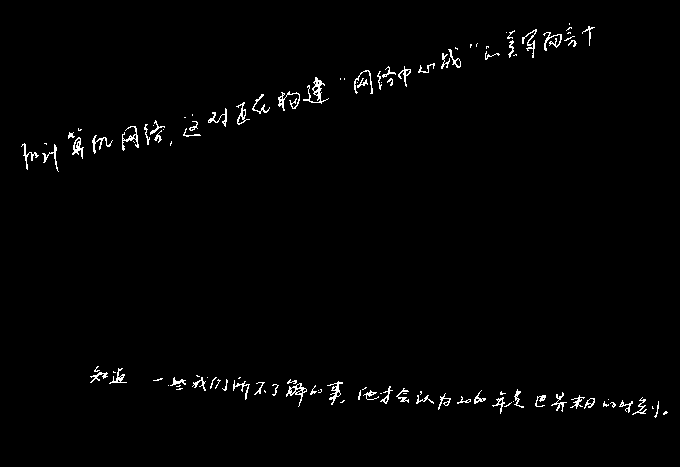 的计算机网络,这对正在构建“网络中心战”的美军而言十
知道一些我们所不了解的事,他才会认为2060年是世界末日的时刻。